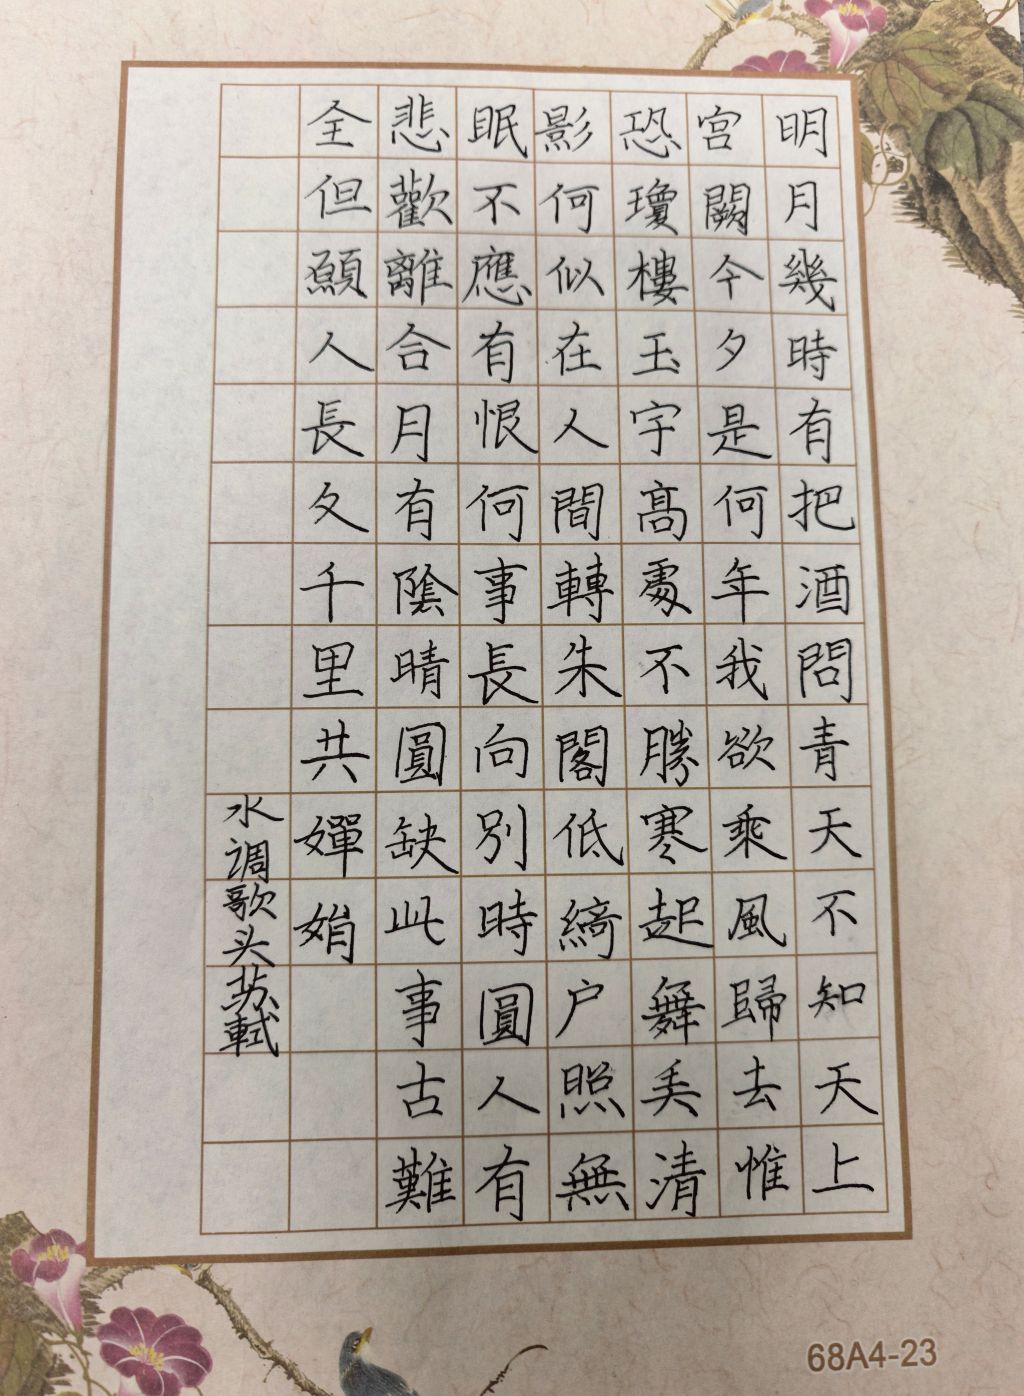 明月幾時有把酒問青天不知天上
宮闕今夕是何年我欲乘風歸去惟
恐瓊樓玉宇高處不勝寒起舞美清
影何似在人間轉朱閣低綺户照無
眠不應有恨何事長向別時圓人有
悲歡離合月有陰晴圓缺此事古難
全但願人長久千里共嬋娟
水调歌头苏軾
68A4-23